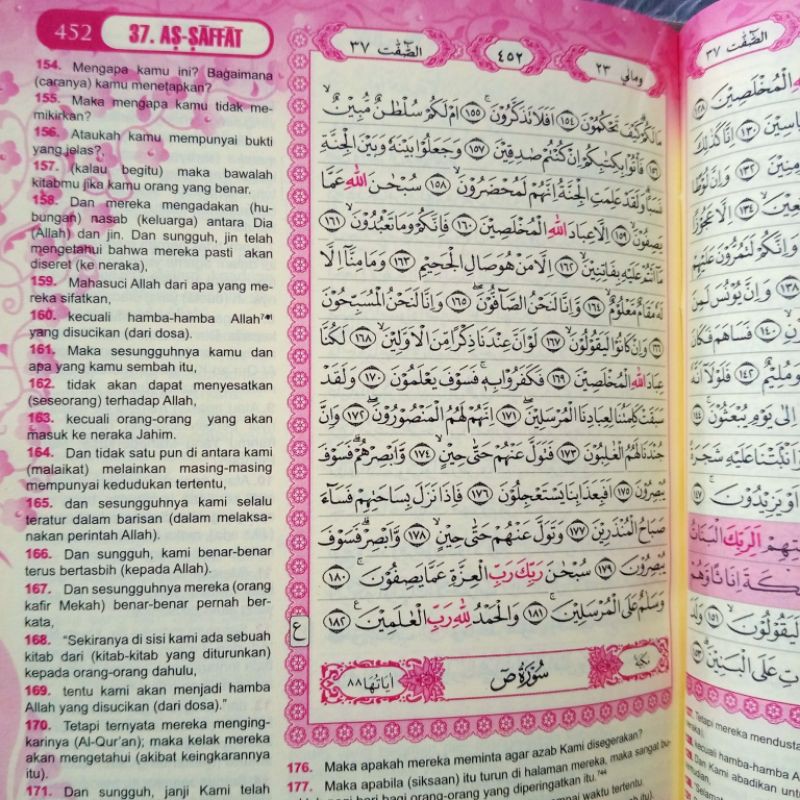 452
37. AṢ-ṢĀFFĀT
154. Mengapa kamu ini? Bagaimana
(caranya) kamu menetapkan?
155. Maka mengapa kamu tidak me-
mikirkan?
156. Ataukah kamu mempunyai bukti
yang jelas?
157. (kalau begitu) maka bawalah
kitabmu jika kamu orang yang benar.
158. Dan mereka mengadakan (hu-
bungan) nasab (keluarga) antara Dia
(Allah) dan jin. Dan sungguh, jin telah
mengetahui bahwa mereka pasti akan
diseret (ke neraka),
159. Mahasuci Allah dari apa yang me-
reka sifatkan,
160. kecuali hamba-hamba Allah
yang disucikan (dari dosa).
161. Maka sesungguhnya kamu dan
apa yang kamu sembah itu,
162. tidak akan dapat menyesatkan
(seseorang) terhadap Allah,
163. kecuali orang-orang yang akan
masuk ke neraka Jahim.
164. Dan tidak satu pun di antara kami
(malaikat) melainkan masing-masing
mempunyai kedudukan tertentu,
165. dan sesungguhnya kami selalu
teratur dalam barisan (dalam melaksa-
nakan perintah Allah).
166. Dan sungguh, kami benar-benar
terus bertasbih (kepada Allah).
167. Dan sesungguhnya mereka (orang
kafir Mekah) benar-benar pernah ber-
kata,
168. “Sekiranya di sisi kami ada sebuah
kitab dari (kitab-kitab yang diturunkan)
kepada orang-orang dahulu,
169. tentu kami akan menjadi hamba
Allah yang disucikan (dari dosa).”
170. Tetapi ternyata mereka menging-
karinya (Al-Qur'an); maka kelak mereka
akan mengetahui (akibat keingkarannya
itu).
171. Dan sungguh, janji Kami telah
الصّٰفّٰت ٣٧
٤٥٢
ومالي ٢٣
مَا لَكُمْ كَيْفَ تَحْكُمُوْنَ ١٥٤ اَفَلَا تَذَكَّرُوْنَ ١٥٥ اَمْ لَكُمْ سُلْطٰنٌ مُّبِيْنٌ
١٥٦ فَأْتُوْا بِكِتٰبِكُمْ اِنْ كُنْتُمْ صٰدِقِيْنَ ١٥٧ وَجَعَلُوْا بَيْنَهٗ وَبَيْنَ الْجِنَّةِ
نَسَبًا وَلَقَدْ عَلِمَتِ الْجِنَّةُ اِنَّهُمْ لَمُحْضَرُوْنَ ١٥٨ سُبْحٰنَ اللّٰهِ عَمَّا
يَصِفُوْنَ ١٥٩ اِلَّا عِبَادَ اللّٰهِ الْمُخْلَصِيْنَ ١٦٠ فَاِنَّكُمْ وَمَا تَعْبُدُوْنَ ١٦١
مَآ اَنْتُمْ عَلَيْهِ بِفَاتِنِيْنَ ١٦٢ اِلَّا مَنْ هُوَ صَالِ الْجَحِيْمِ ١٦٣ وَمَا مِنَّآ اِلَّا
لَهٗ مَقَامٌ مَّعْلُوْمٌ ١٦٤ وَاِنَّا لَنَحْنُ الصَّاۤفُّوْنَ ١٦٥ وَاِنَّا لَنَحْنُ الْمُسَبِّحُوْنَ
١٦٦ وَاِنْ كَانُوْا لَيَقُوْلُوْنَ ١٦٧ لَوْ اَنَّ عِنْدَنَا ذِكْرًا مِّنَ الْاَوَّلِيْنَ ١٦٨ لَكُنَّا
عِبَادَ اللّٰهِ الْمُخْلَصِيْنَ ١٦٩ فَكَفَرُوْا بِهٖ فَسَوْفَ يَعْلَمُوْنَ ١٧٠ وَلَقَدْ
سَبَقَتْ كَلِمَتُنَا لِعِبَادِنَا الْمُرْسَلِيْنَ ١٧١ اِنَّهُمْ لَهُمُ الْمَنْصُوْرُوْنَ ١٧٢ وَاِنَّ
جُنْدَنَا لَهُمُ الْغٰلِبُوْنَ ١٧٣ فَتَوَلَّ عَنْهُمْ حَتّٰى حِيْنٍ ١٧٤ وَّاَبْصِرْهُمْ فَسَوْفَ
يُبْصِرُوْنَ ١٧٥ اَفَبِعَذَابِنَا يَسْتَعْجِلُوْنَ ١٧٦ فَاِذَا نَزَلَ بِسَاحَتِهِمْ فَسَاۤءَ
صَبَاحُ الْمُنْذَرِيْنَ ١٧٧ وَتَوَلَّ عَنْهُمْ حَتّٰى حِيْنٍ ١٧٨ وَّاَبْصِرْ فَسَوْفَ
يُبْصِرُوْنَ ١٧٩ سُبْحٰنَ رَبِّكَ رَبِّ الْعِزَّةِ عَمَّا يَصِفُوْنَ ١٨٠
وَسَلٰمٌ عَلَى الْمُرْسَلِيْنَ ١٨١ وَالْحَمْدُ لِلّٰهِ رَبِّ الْعٰلَمِيْنَ ١٨٢
ع
مكية
سُوْرَةُ صۤ
اٰيَاتُهَا ٨٨
176. Maka apakah mereka meminta agar azab Kami disegerakan?
177. Maka apabila (siksaan) itu turun di halaman mereka, maka sangat bu-
bagi orang-orang yang diperingatkan itu.
waktu tertentu
الصّٰفّٰت ٣٧
الْمُخْلَصِيْنَ
١٣٠ اِنَّا كَذٰلِكَ
وَاِنَّ لُوْطًا
اِلَّا عَجُوْزًا
وَاِنَّكُمْ لَتَمُرُّوْنَ عَلَيْهِمْ
١٣٨ وَاِنَّ يُوْنُسَ لَمِنَ
١٤٠ فَسَاهَمَ فَكَانَ
مُلِيْمٌ ١٤٢ فَلَوْلَآ اَنَّهٗ
اِلٰى يَوْمِ يُبْعَثُوْنَ ١٤٤
وَاَنْۢبَتْنَا عَلَيْهِ شَجَرَةً
اَوْ يَزِيْدُوْنَ ١٤٧
اَلِرَبِّكَ الْبَنَاتُ
اِنَاثًا وَّهُمْ
لَيَقُوْلُوْنَ ١٥١ وَلَدَ
عَلَى الْبَنِيْنَ ١٥٣
Tetapi mereka mendusta
kecuali hamba-hamba A
Dan Kami abadikan untu